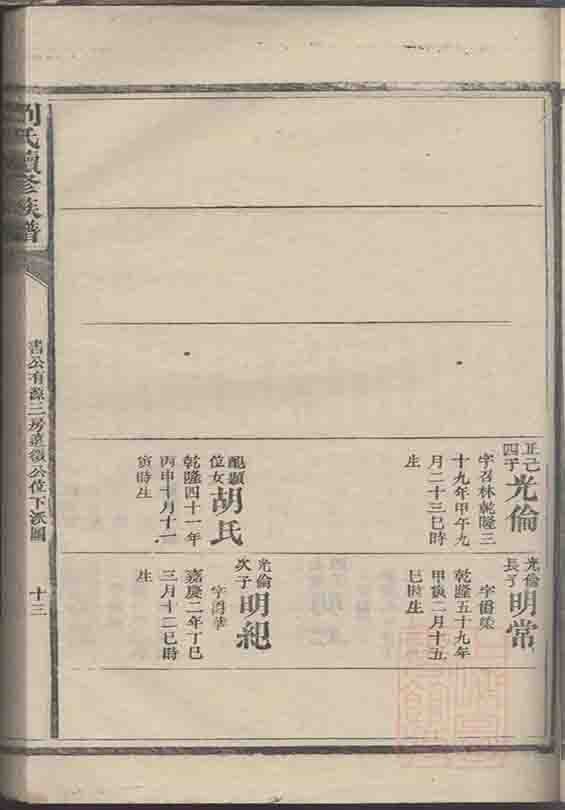 劉氏續修族譜
公有源三房達徵公位下派圖
十三
正己
四子
光倫
字召林乾隆三
十九年甲午九
月二十三巳時
生
配顯
位女
胡氏
乾隆四十一年
丙申十月十一
寅時生
光倫
長子
明常
乾隆五十九年
甲寅二月十五
巳時生
光倫
次子
明紀
嘉慶二年丁巳
三月十二巳時
生